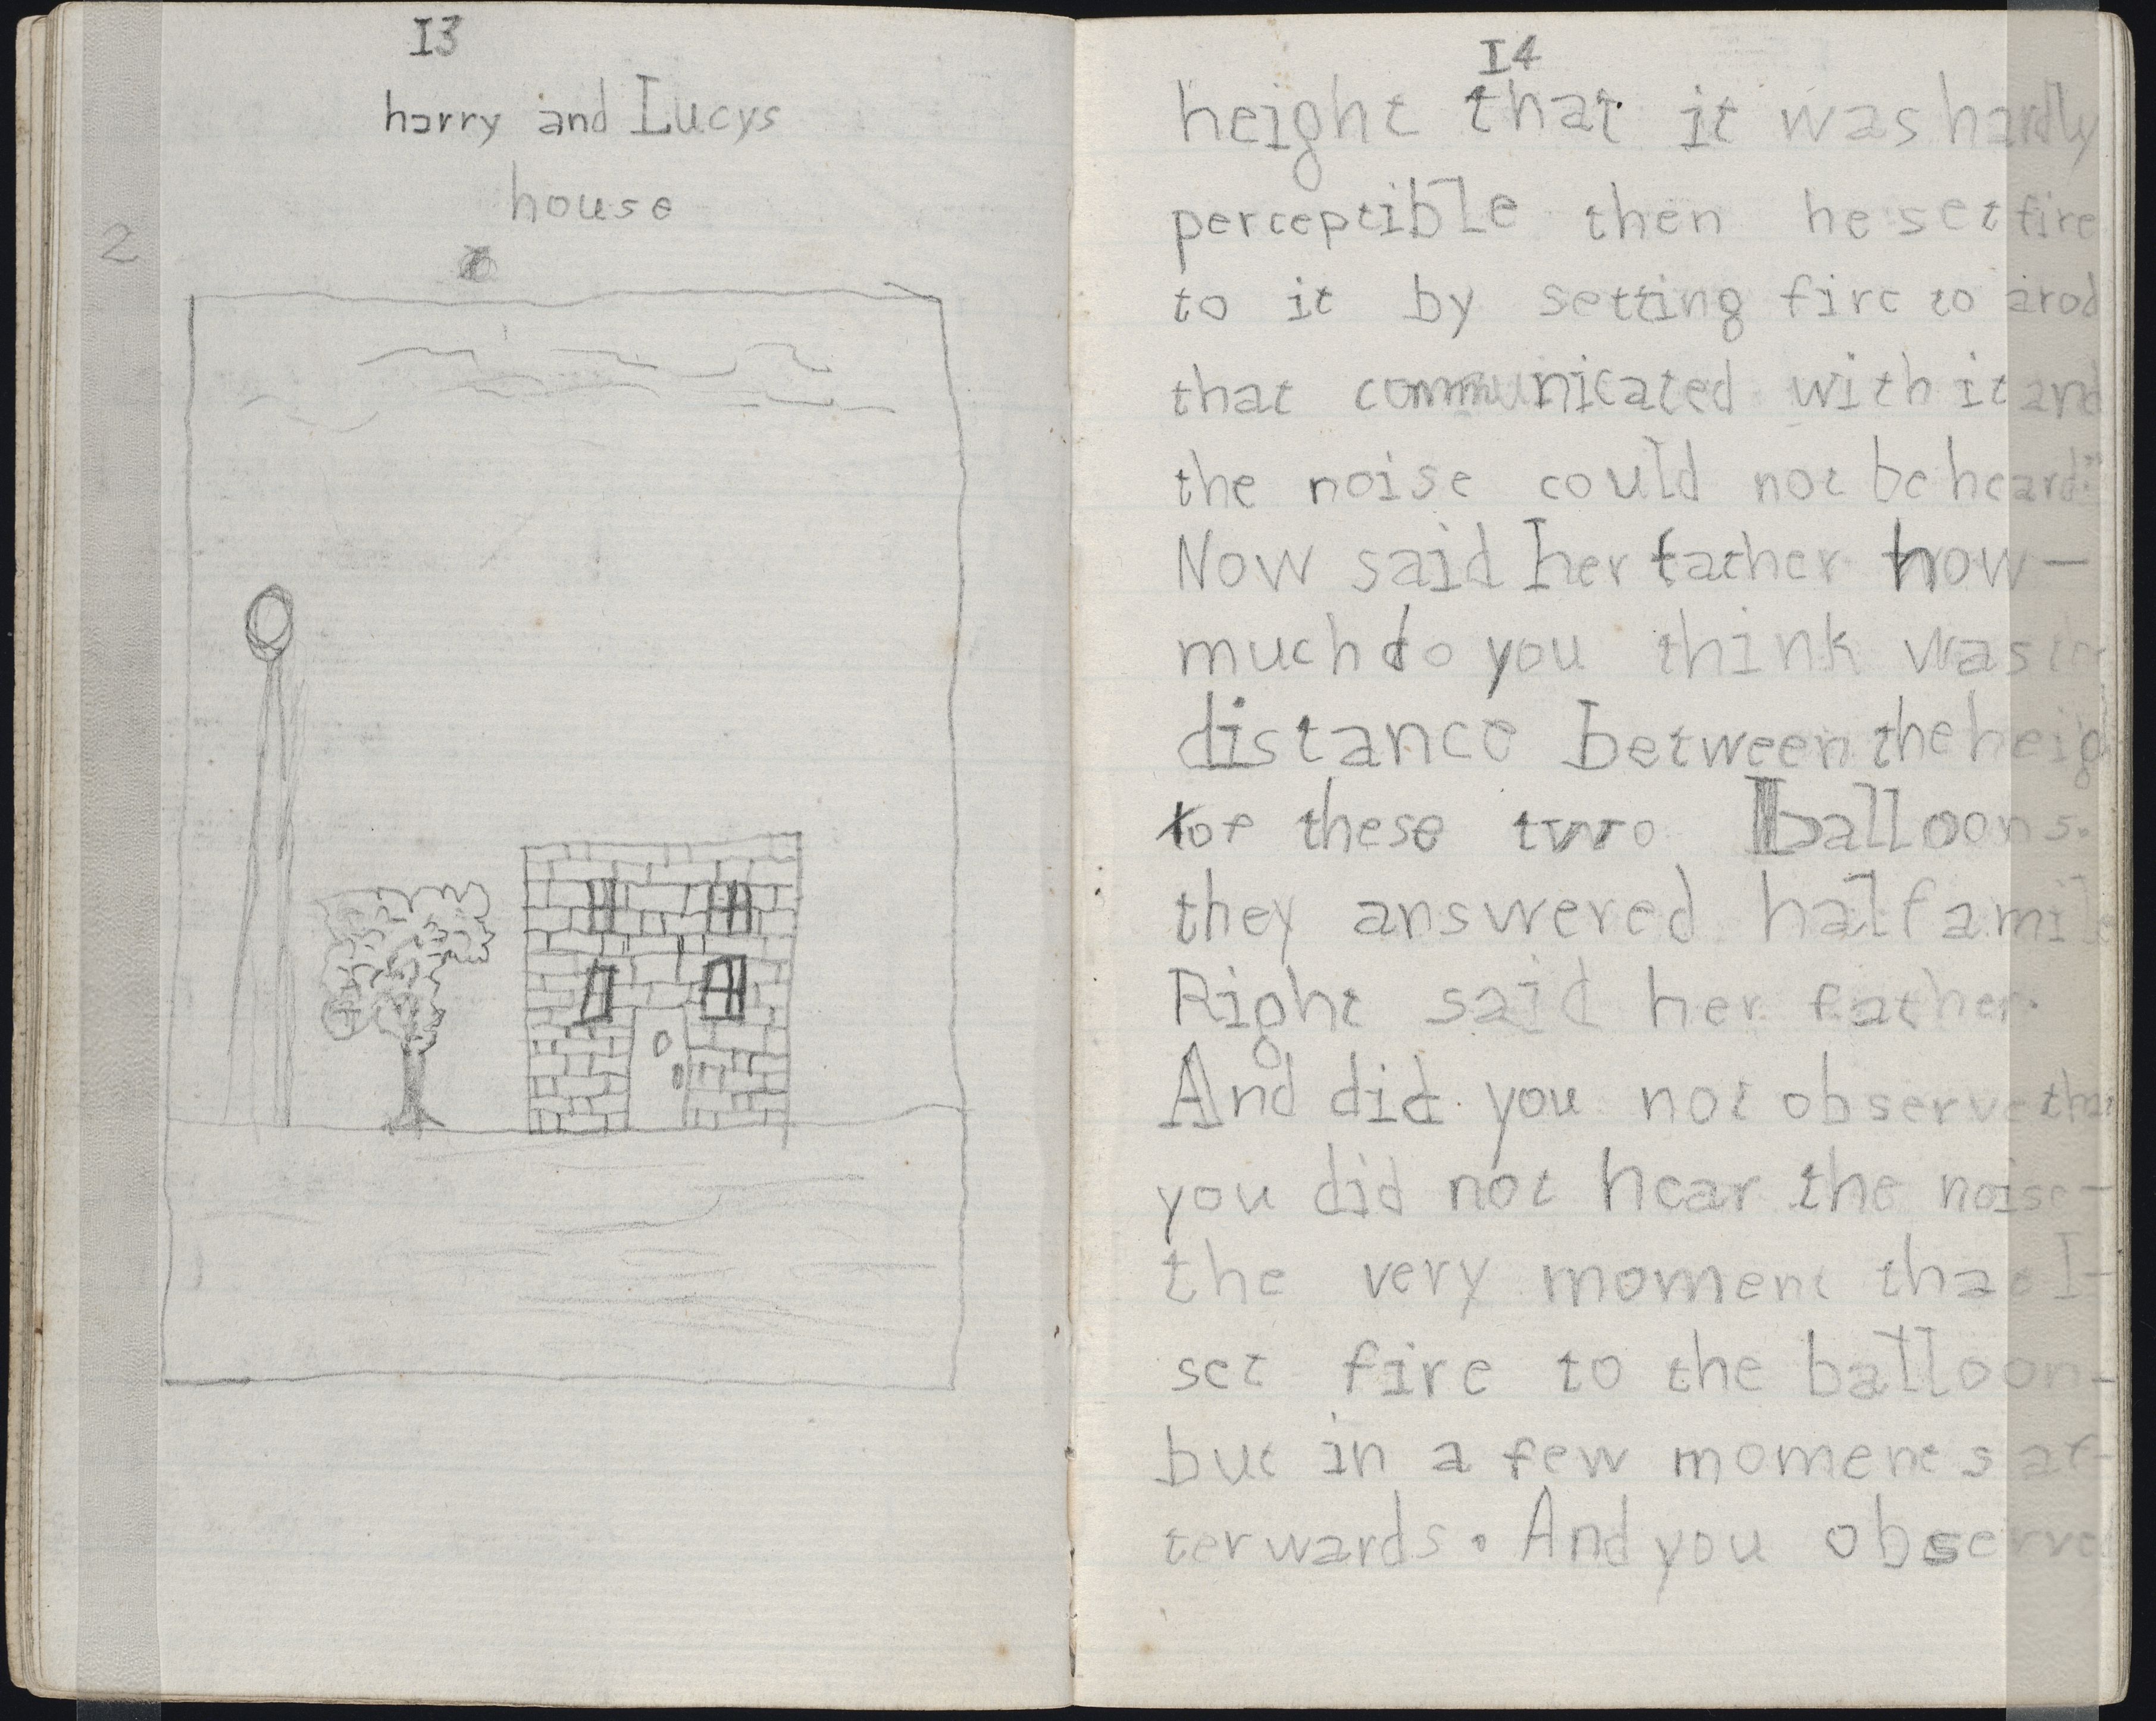 I3
harry and Lucys
house
2
I4
height that it was hardly
perceptible then he set fire
to it by setting fire to arod
that communicated with it and
the noise could not be heard."
Now said her father how-
much do you think was
distance between the heig
of these two balloons.
they answered half a mile
Right said her father.
And did you not observe
you did not hear the noise-
the very moment that I-
set fire to the balloon-
but in a few moments af-
terwards. And you observe